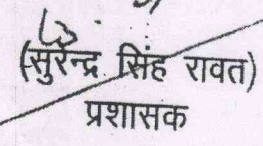 (सुरेन्द्र सिंह रावत)
प्रशासक